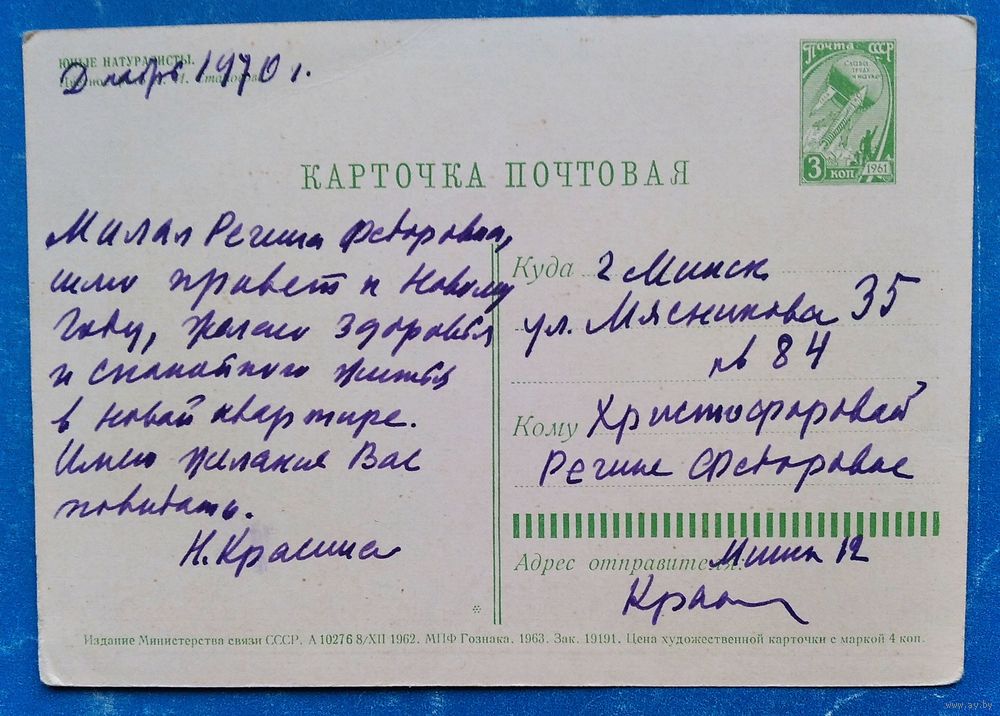 ЮНЫЕ НАТУРАЛИСТЫ.
Декабрь 1970 г.
Почта СССР
СЛАВА
ТРУДУ
И НАУКЕ
3 коп 1961
КАРТОЧКА ПОЧТОВАЯ
Милая Регина Федоровна,
шлю привет к Новому
Году, желаю здоровья
и спокойного житья
в новой квартире.
Имею желание Вас
повидать.
Н. Красина
Куда г Минск
ул. Мясникова 35
кв 84
Кому Христофоровой
Регине Федоровне
Адрес отправителя: Минск 12
Издание Министерства связи СССР. А 10276 8/XII 1962. МПФ Гознака. 1963. Зак. 19191. Цена художественной карточки с маркой 4 коп.
www.ay.by